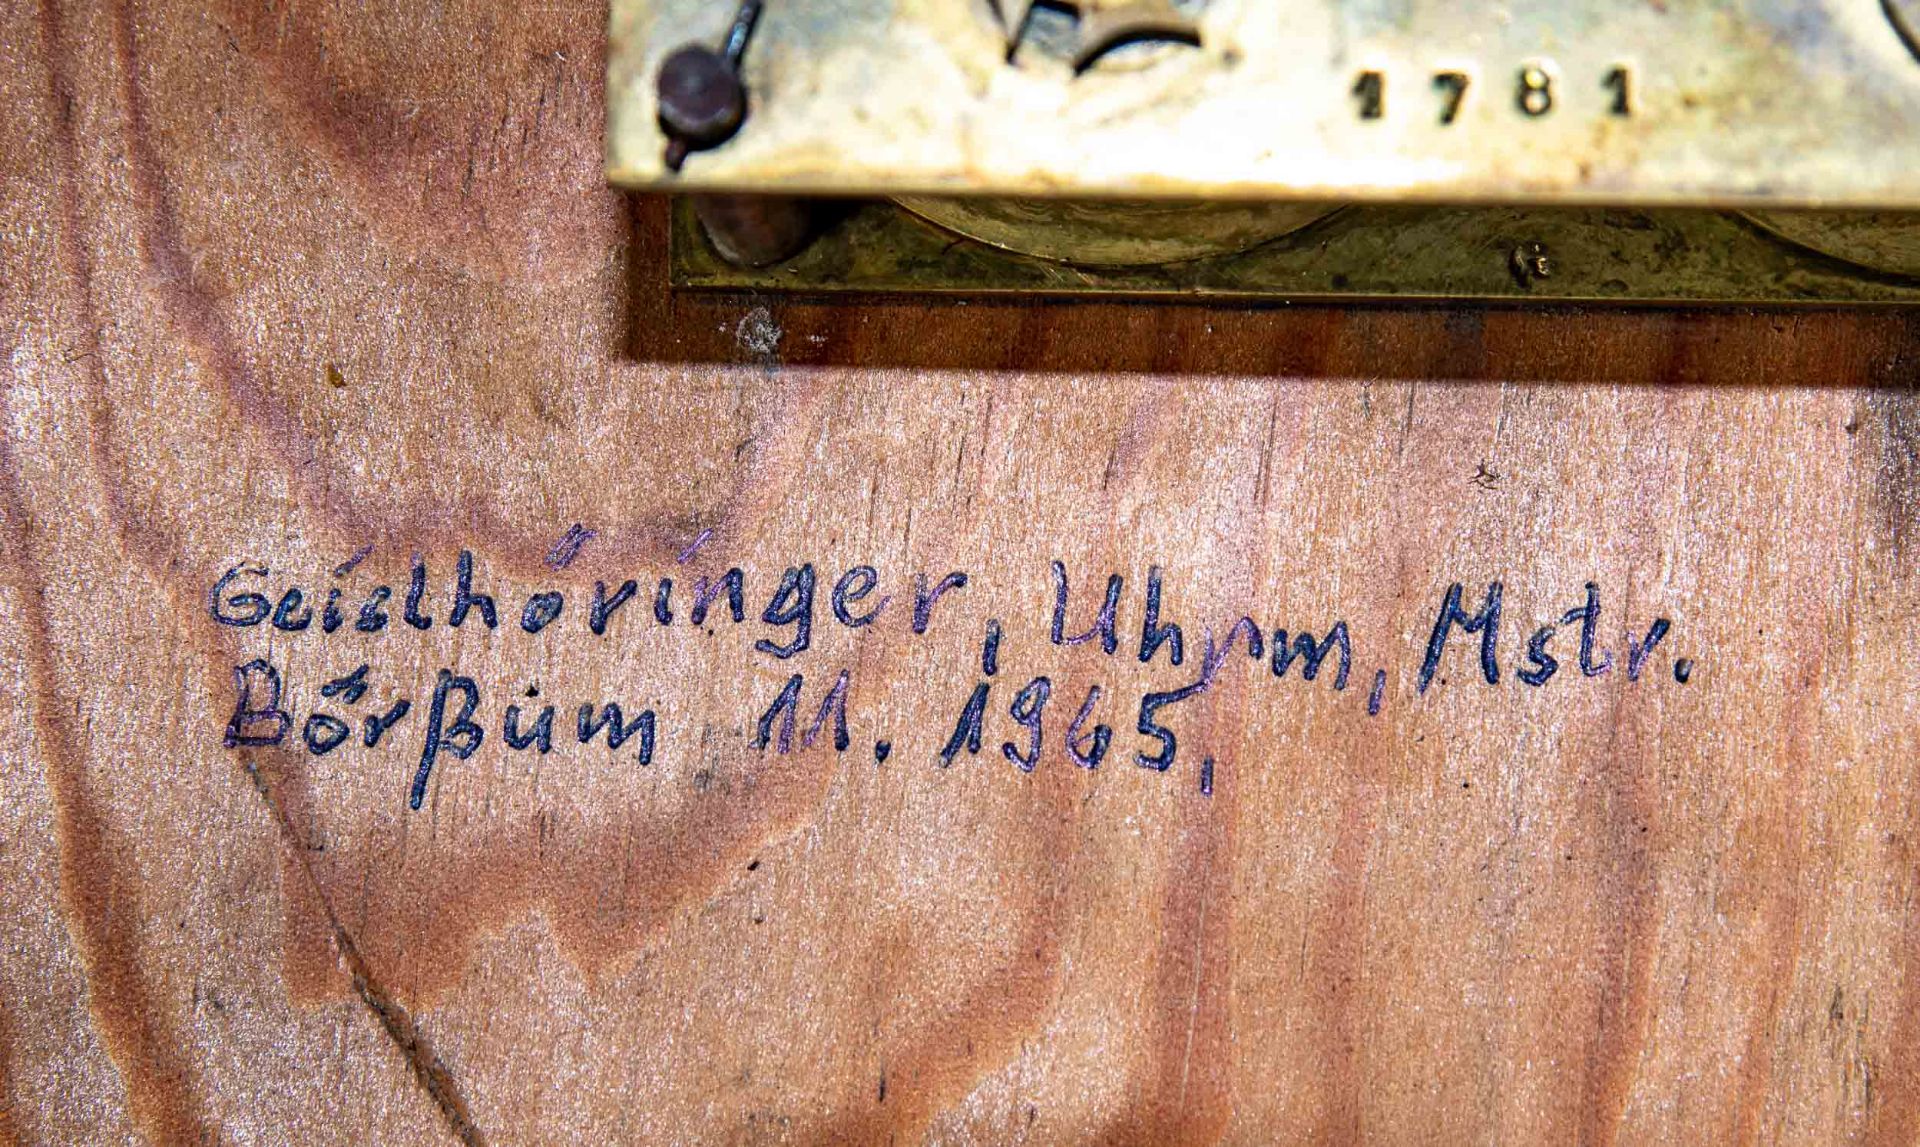 1781
Geislhöringer, Uhrm, Mstr.
Börßum 11. 1965.